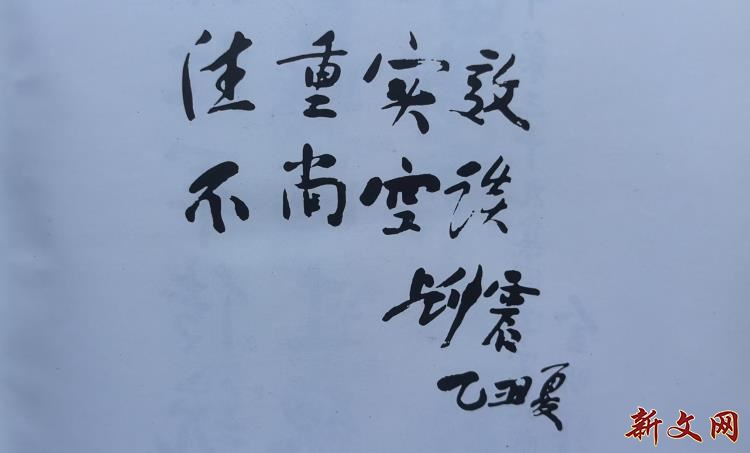 注重实效
不尚空谈
震
乙丑夏
新文网